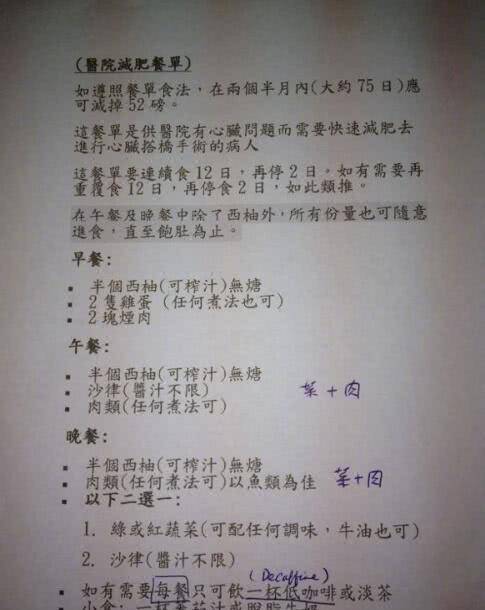 (醫院減肥餐單)
如遵照餐單食法，在兩個半月內(大約75日)應
可減掉52磅。
這餐單是供醫院有心臟問題而需要快速減肥去
進行心臟搭橋手術的病人
這餐單要連續食12日，再停2日。如有需要再
重覆食12日，再停食2日，如此類推。
在午餐及晚餐中除了西柚外，所有份量也可隨意
進食，直至飽肚為止。
早餐：
▪ 半個西柚(可榨汁)無煻
▪ 2隻雞蛋 (任何煮法也可)
▪ 2塊煙肉
午餐：
▪ 半個西柚(可榨汁)無煻
▪ 沙律(醬汁不限) 菜+肉
▪ 肉類(任何煮法可)
晚餐：
▪ 半個西柚(可榨汁)無煻
▪ 肉類(任何煮法可)以魚類為佳 菜+肉
▪ 以下二選一：
1. 綠或紅蔬菜(可配任何調味，牛油也可)
2. 沙律(醬汁不限)
(Decaffine)
▪ 如有需要每餐只可飲一杯低咖啡或淡茶
▪ 小食：一杯蕃茄汁或脫脂牛奶